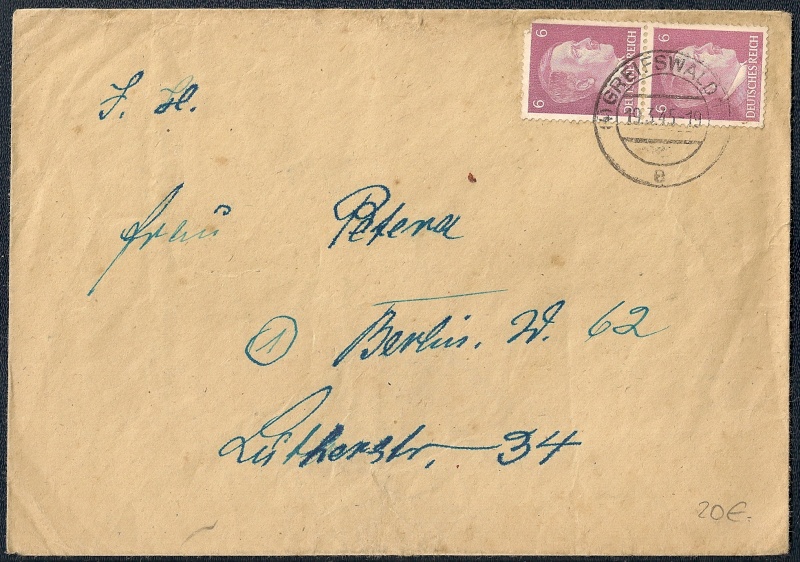 6 6
DEUTSCHES REICH
6 6
DEUTSCHES REICH
GREIFSWALD
19.3.45-19
e
Frau Petera
1 Berlin. W. 62
Lutherstr. 34
20€.